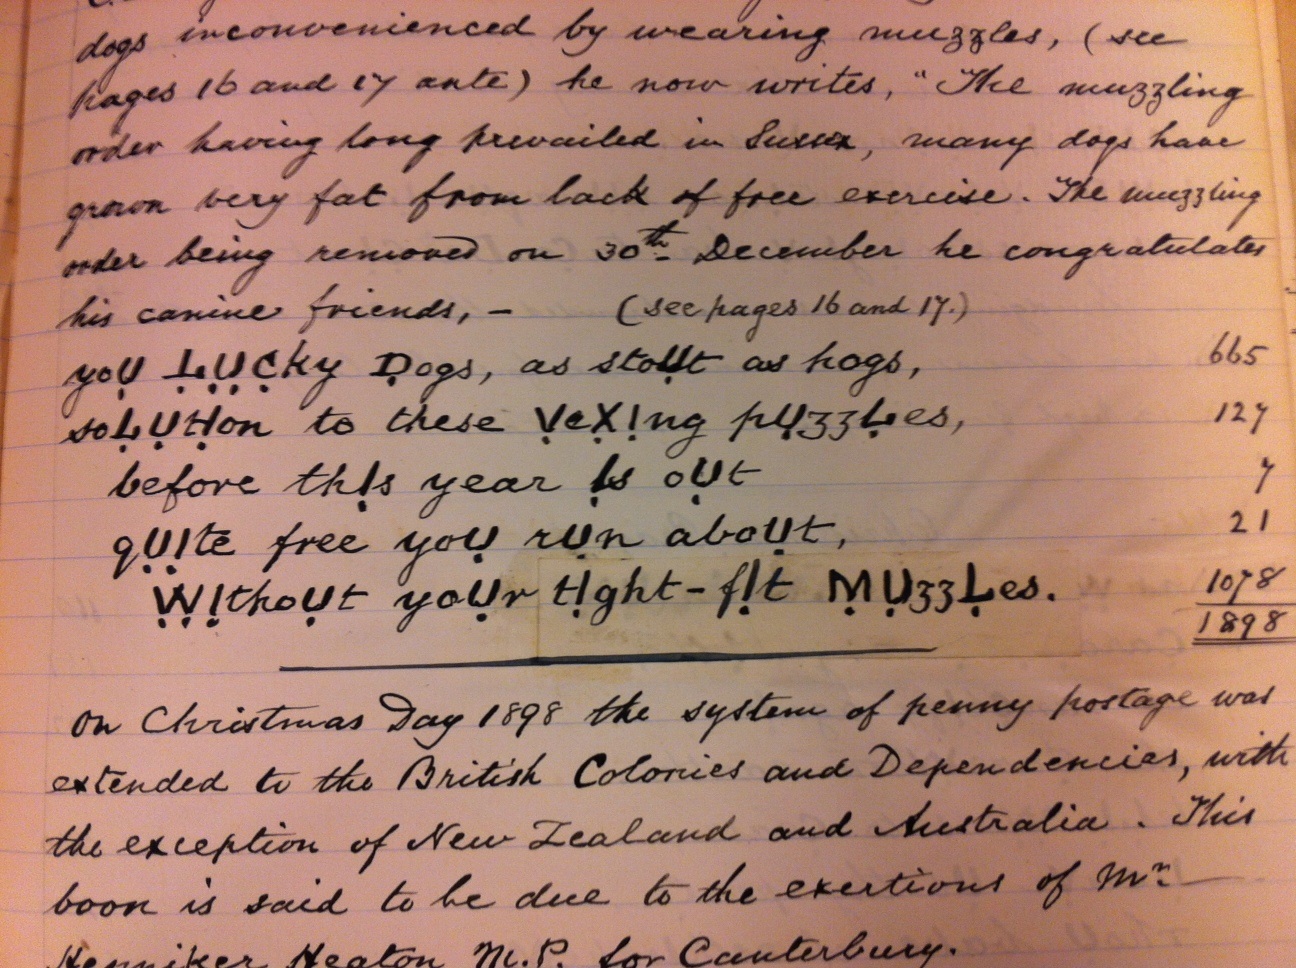 dogs inconvenienced by wearing muzzles, (see
pages 16 and 17 ante) he now writes, "The muzzling
order having long prevailed in Sussex, many dogs have
grown very fat from lack of free exercise. The muzzling
order being removed on 30th December he congratulates
his canine friends, - (see pages 16 and 17.)
yoU LUCky Dogs, as stoUt as hogs, 665
soLUtIon to these VeXIng pUzzLes, 127
before thIs year Is oUt 7
qUIte free yoU rUn aboUt, 21
WIthoUt yoUr tIght-fIt MUzzLes. 1078
1898
On Christmas Day 1898 the system of penny postage was
extended to the British Colonies and Dependencies, with
the exception of New Zealand and Australia. This
boon is said to be due to the exertions of Mr.
Henniker Heaton M.P. for Canterbury.